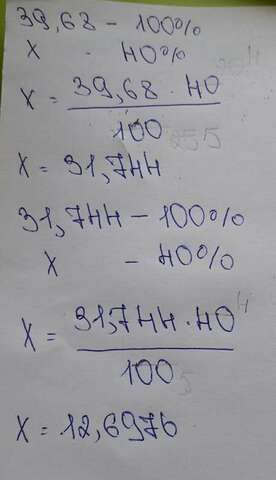 39,68 - 100%
X - 40%
X = 39,68 · 40
100
X = 31,744
31,744 - 100%
X - 40%
X = 31,744 · 40
100
X = 12,6976